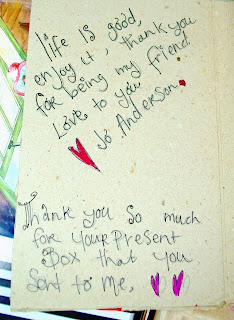 life is good,
enjoy it, thank you
for being my friend
Love to you
Jo Anderson.
Thank you so much
for your Present
Box that you
sent to me,